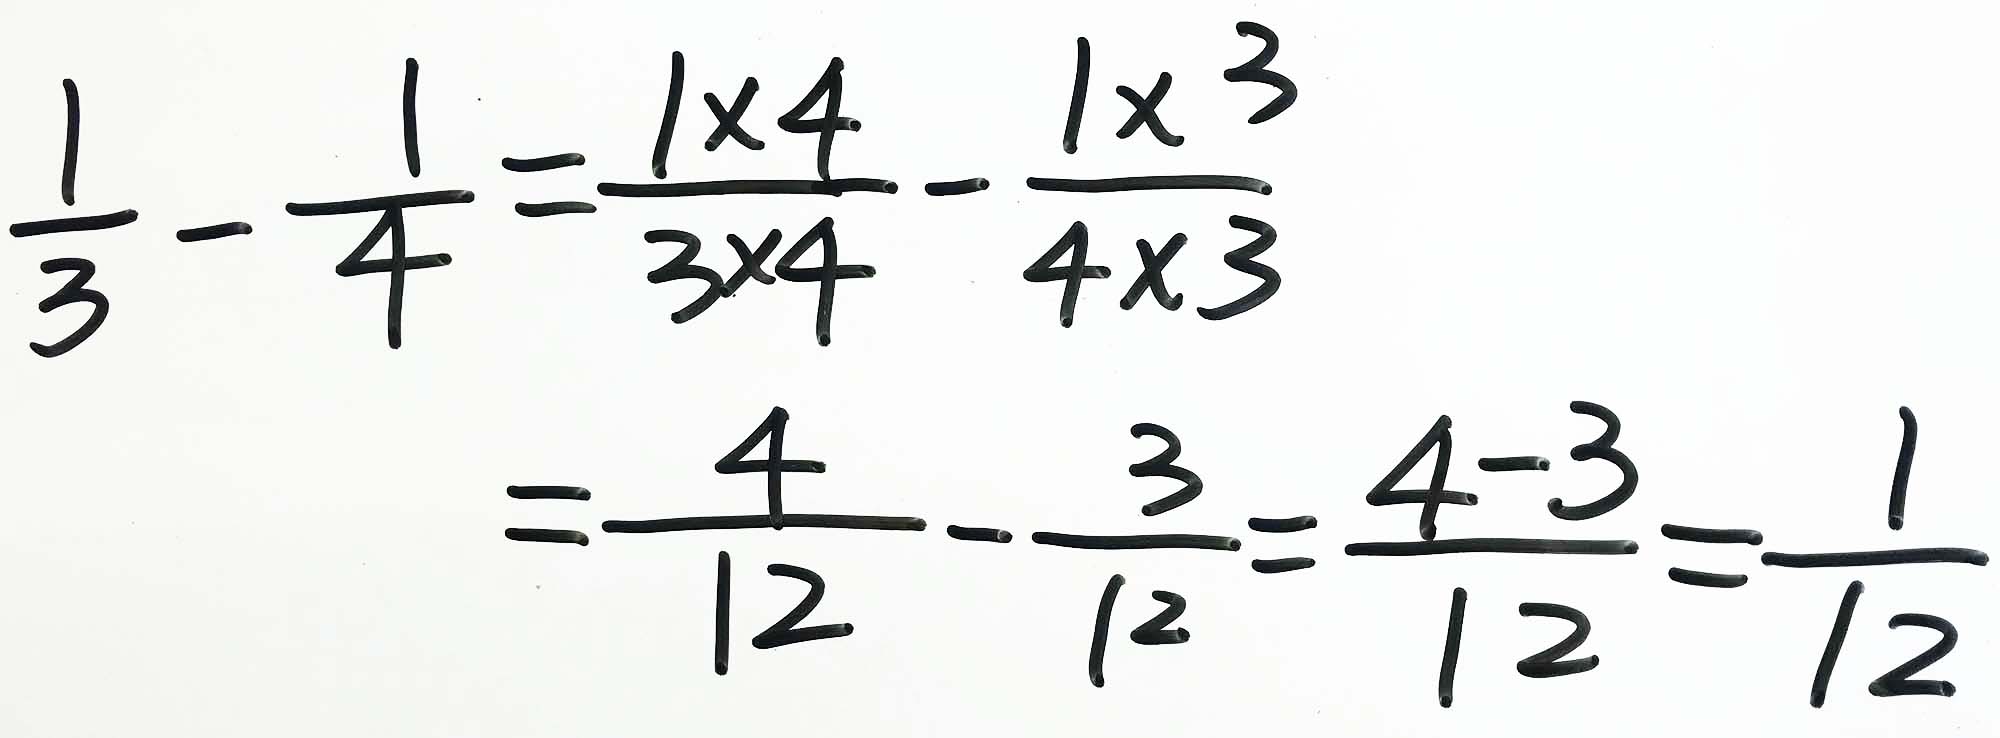 1/3 - 1/4 = (1×4)/(3×4) - (1×3)/(4×3)
= 4/12 - 3/12 = (4-3)/12 = 1/12